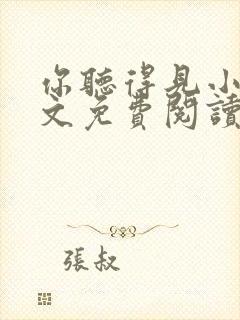 你聽得見小
文免費閱讀
張叔